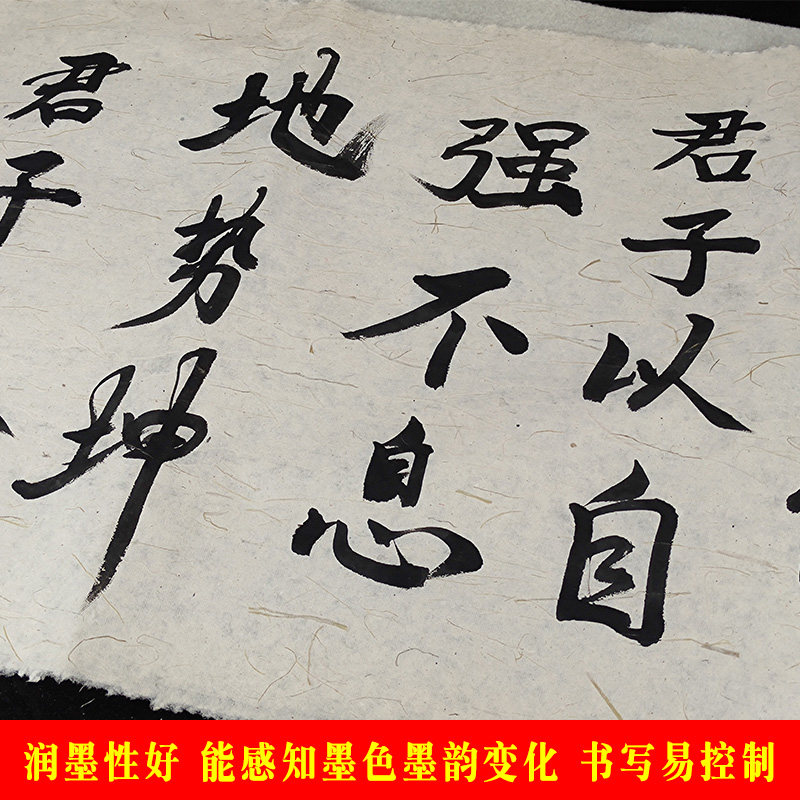 君子以自
强不息
地势坤
君子
润墨性好 能感知墨色墨韵变化 书写易控制